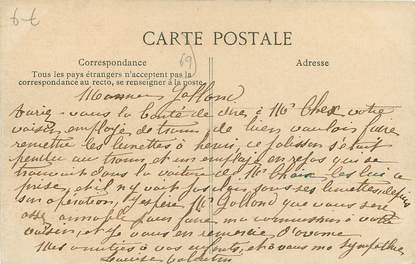 6€
CARTE POSTALE
69
Correspondance
Adresse
Tous les pays étrangers n'acceptent pas la
correspondance au recto, se renseigner à la poste
Monsieur Jollond
Auriez-vous la bonté de dire à Mr votre
voisin employé de trams de bien vouloir faire
remettre les lunettes à ce s'était
au tram, et un employé en repos qui se
trouvait dans la voiture de Mr les lui a
prises, et il n'y voit pas sous ses lunettes depuis
son opération, j'espère Mr Jollond que vous serez
assez aimable pour faire ma commission à votre
voisin, et je vous en remercie d'avance
Mes amitiés à vos enfants, et à vous ma sympathie
Louise Valentin